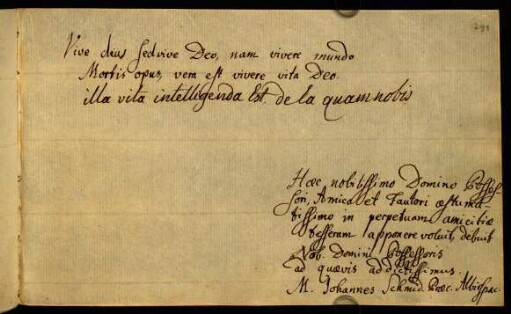 291
Vive deus sed vive Deo, nam vivere mundo
Mortis opus, vera est vivere vita Deo.
illa vita intelligenda Est, de la quam nobis
Haec nobilissimo Domino Possess
sori, Amico et Fautori aestuma
tissimo in perpetuam amicitiae
tesseram apponere voluit, debuit
Nob. Domini Possessoris
ad quaevis addictissimus.
M. Johannes Schmid.